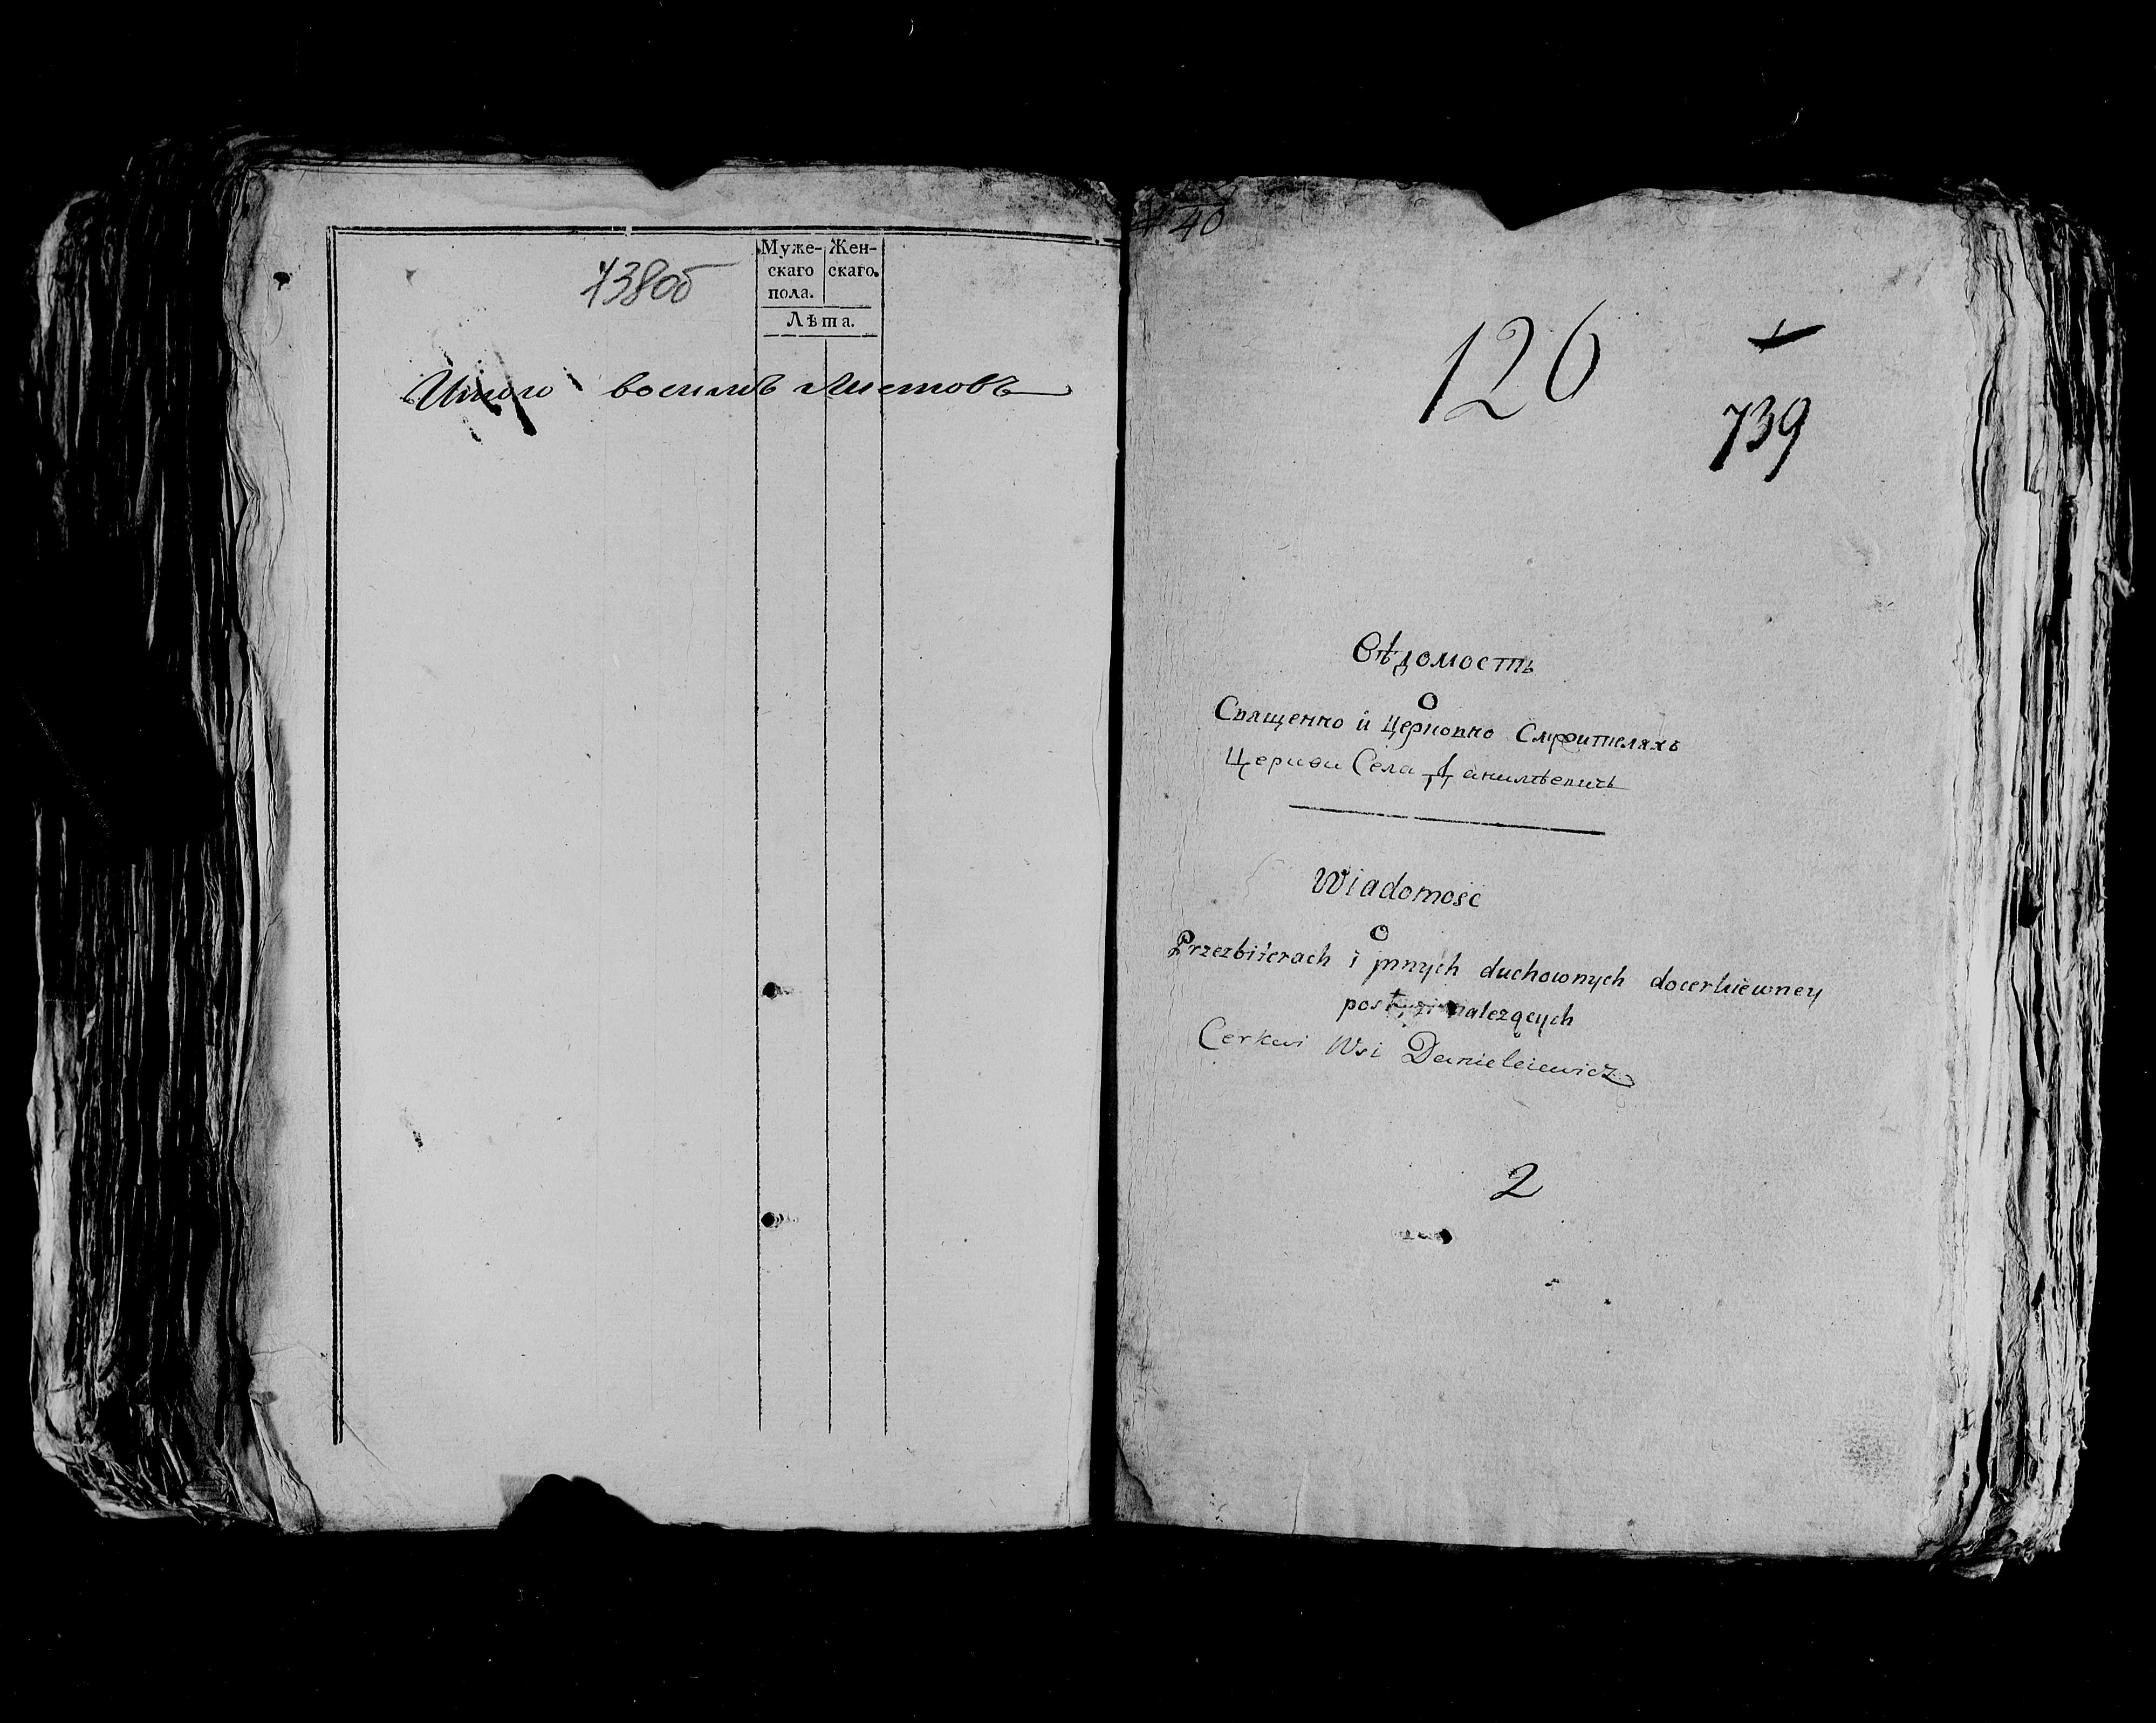 738об
Муже- Жен-
скаго скаго.
пола.
Лѣта.
Итого восимь Листовъ
40
126
739
Вѣдомость
О
Священно и Церковно Служителяхъ
Церкви Села Данилѣвичь
Wiadomość
O
Przezbiterach i jnnych duchownych docerkiewney
należących
Cerkwi Wsi Danielewicz
2